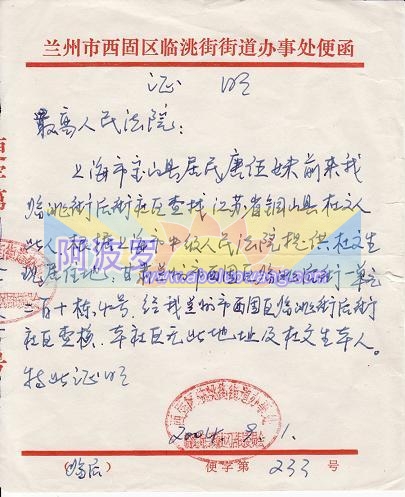 兰州市西固区临洮街街道办事处便函
证明
最高人民法院：
上海市宝山县居民康伍妹前来我
临洮街后街社区查找江苏省铜山县杜文人
此人根据上海市中级人民法院提供杜文生
现居住地：甘肃兰州市西固区临洮后街一单元
百十栋 号，经我兰州市西固区临洮街后街
社区查核，本社区无此地址及杜文生本人。
特此证明
2004. 9. 1.
（临后） 便字第 233 号
阿波罗